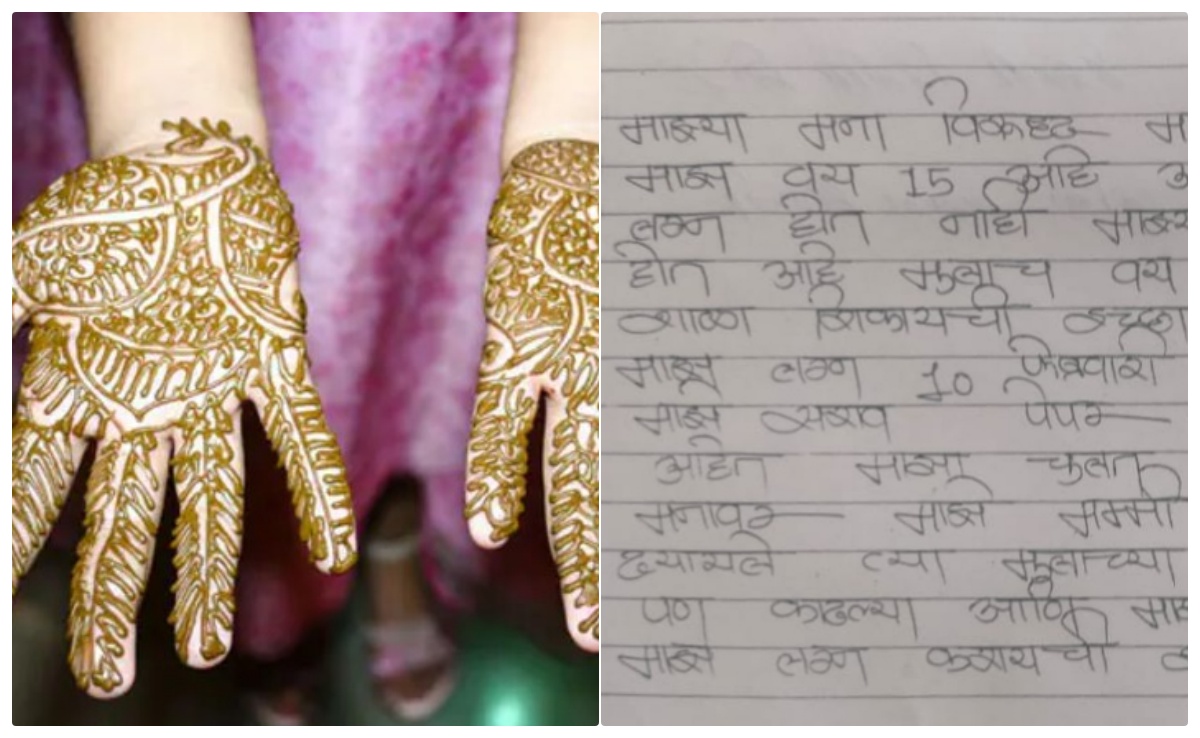 माझ्या मना विरुद्ध
माझ वय 15 आहे
लग्न होत नाही माझ्य
होत आहे मुलाच वय
शाळा शिकायची इच्छा
माझे लग्न 10 फेब्रुवारी
माझे सराव पेपर
आहेत माझा चुलत
मनावर माझे मम्मी
त्या मुलाच्या
पण काढल्या आणि
माझे लग्न करायची